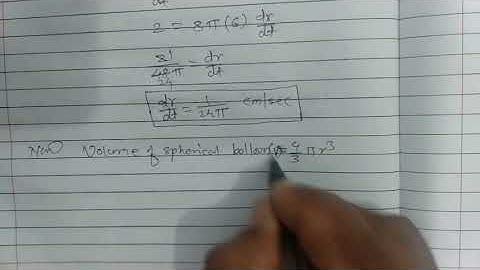 2 = 8π(6) dr/dt
2̸1/48̸24π = dr/dt
dr/dt = 1/24π cm/sec
Now Volume of spherical ballon = 4/3 πr³